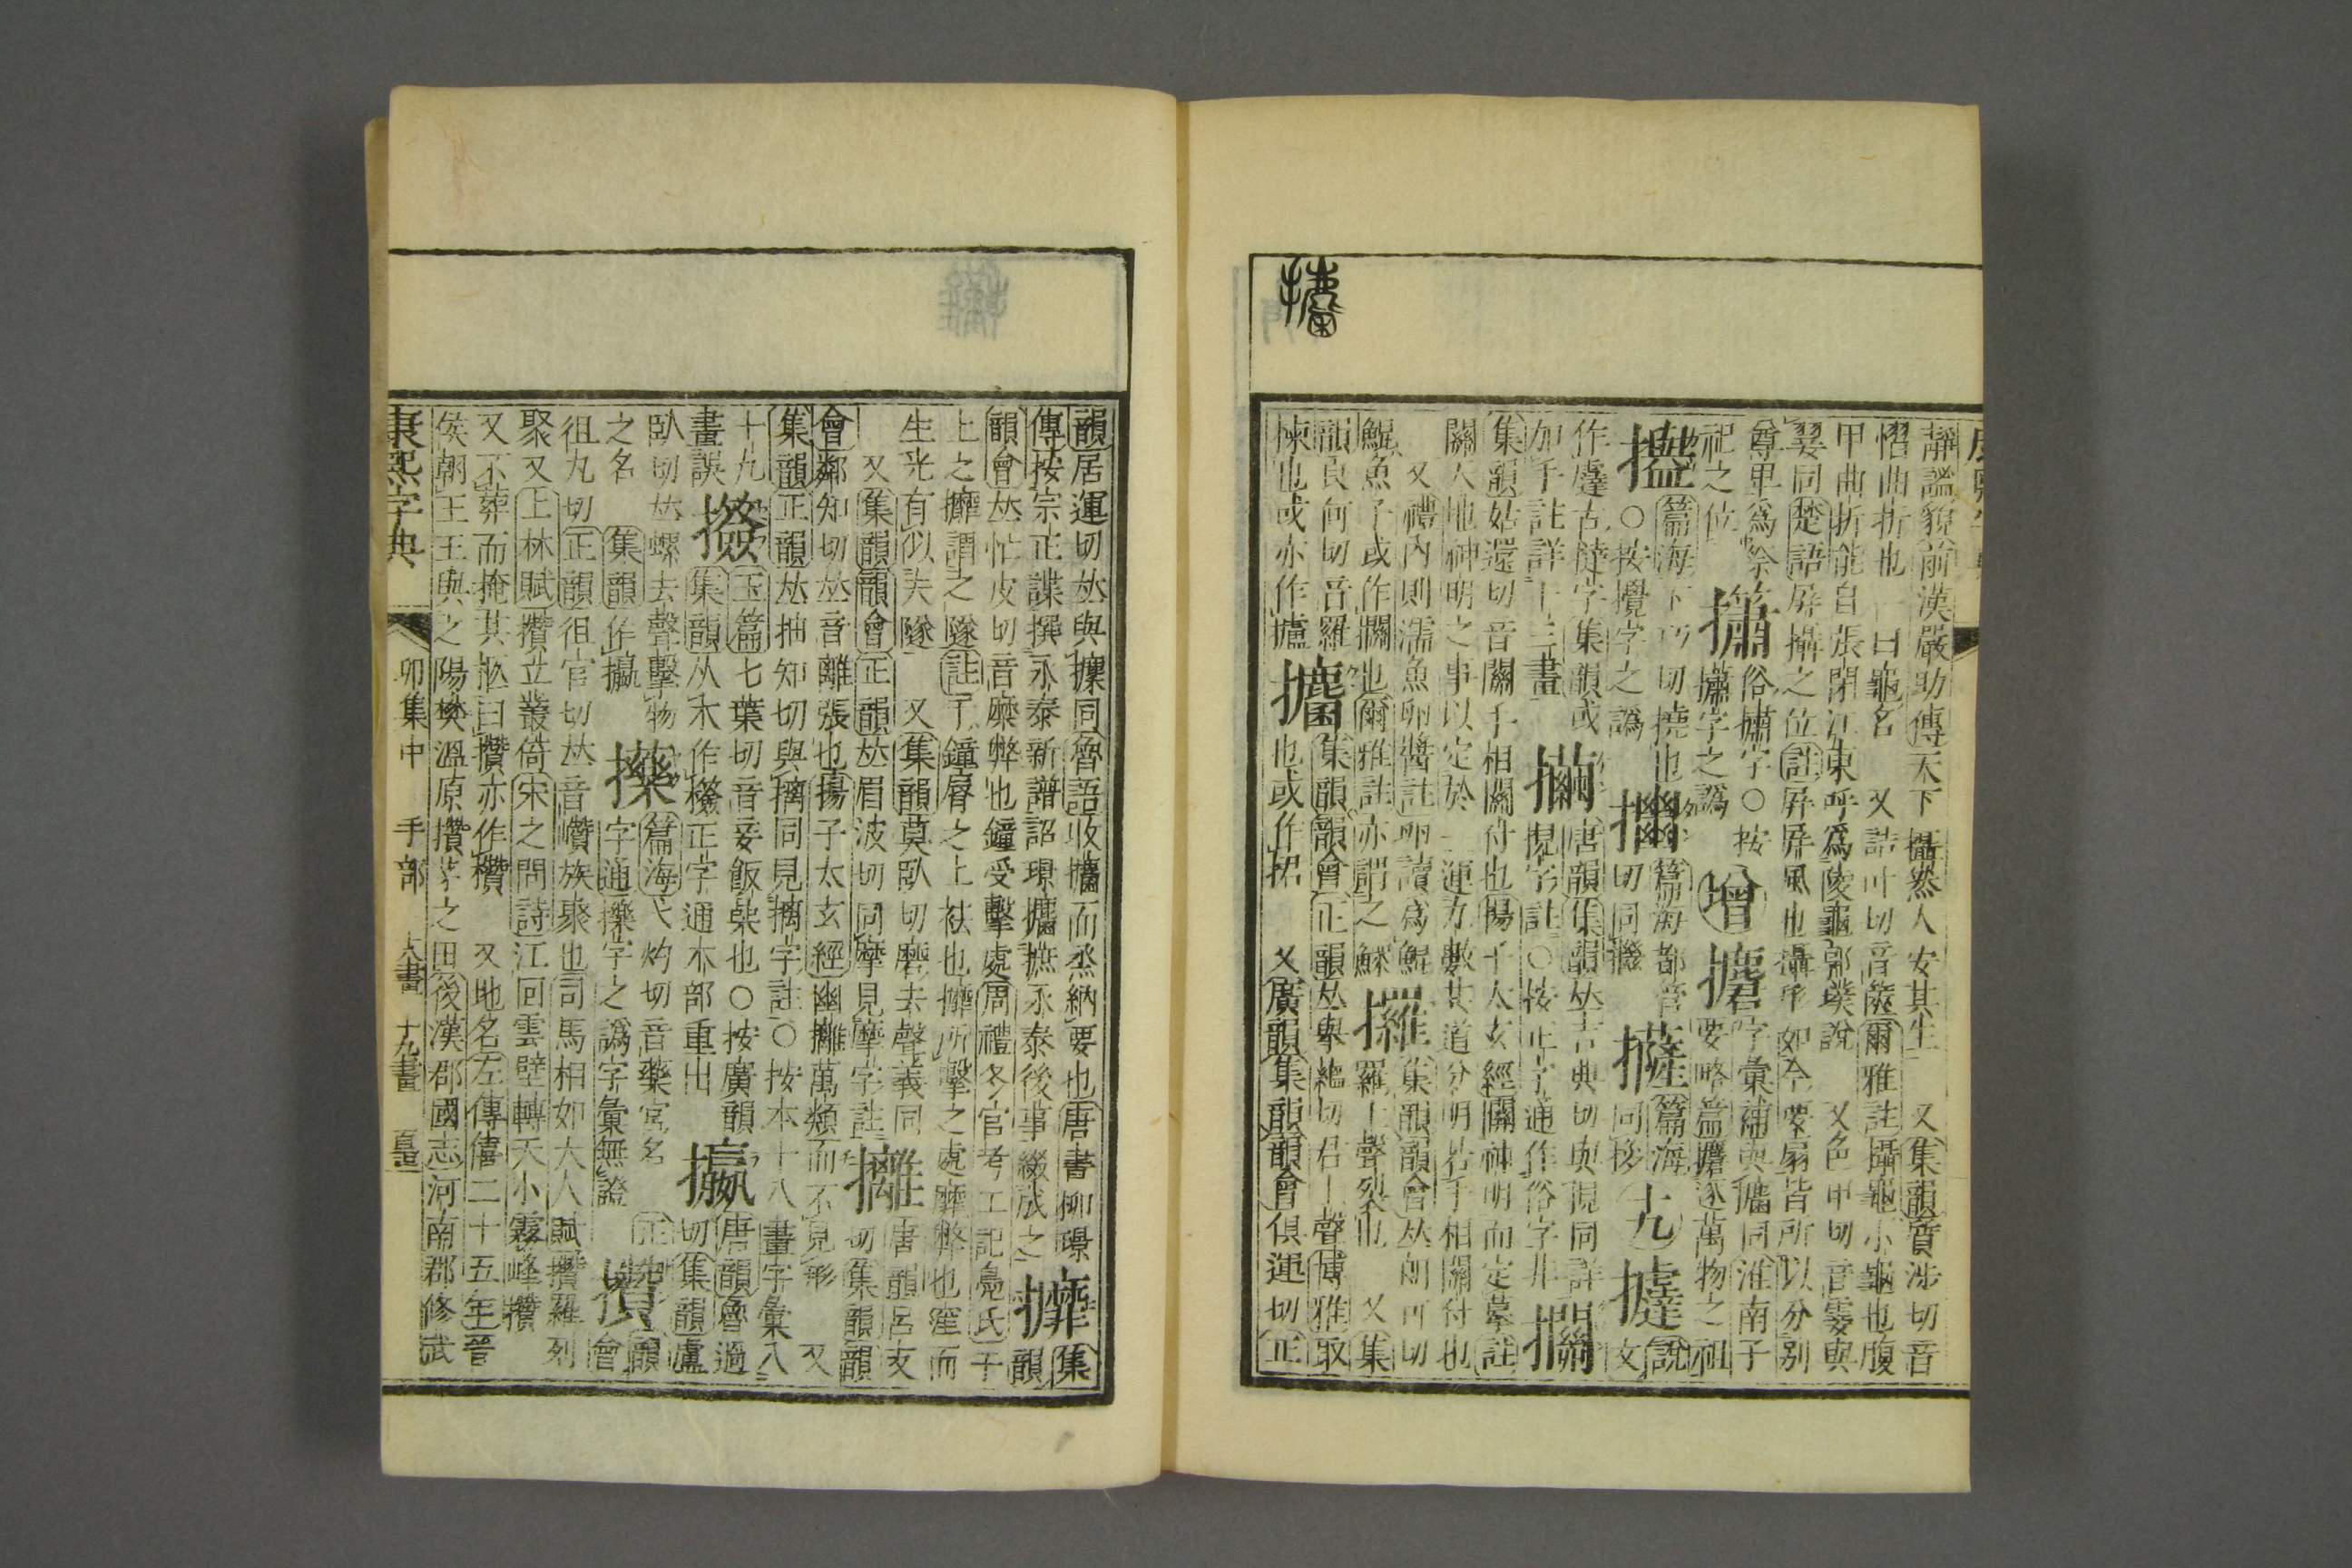 靜謐貌前漢嚴助傳天下攝然人安其生 又集韻質涉切音
慴曲折也一曰龜名 又詰叶切音篋爾雅註攝龜小龜也腹
甲曲折能自張閉江東呼爲陵龜郭璞說 又色甲切音霎與
翣同楚語屏攝之位註屏屏風也攝形如今要扇皆所以分别
尊卑爲祭
祀之位
俗攇字○按
字之譌
增
攟
字彙補與攟同淮南子
要略篇攟逐萬物之祖
篇海
切撓也
○按攬字之譌
篇海
切同
篇海
同拶
十九
撻
說文
作撻古撻字集韻或
加手註詳十三畫
唐韻集韻𠀤古典切與挸同詳
挸字註○按正字通作俗字非
集韻姑還切音關手相關付也揚子太玄經關神明而定摹註
關天地神明之事以定於一運方數其道分明若手相關付也
又禮內則濡魚卵醬註卵讀爲鯤
鯤魚子或作攔也爾雅註亦謂之鰥
攞
集韻韻會𠀤朗可切
羅上聲裂也 又集
韻良何切音羅
揀也或亦作攎
攟
集韻韻會正韻𠀤舉蘊切君上聲博雅取
也或作捃 又廣韻集韻韻會俱運切正
韻居運切𠀤與攗同魯語收攟而烝納要也唐書柳璟
傳按宗正諜撰永泰新譜詔璟攟摭永泰後事綴成之
攠
集
韻
韻會𠀤忙皮切音糜弊也鐘受擊處周禮冬官考工記鳧氏于
上之攠謂之隧註于鐘脣之上袪也攠所擊之處攠弊也窐而
生光有似夫隧 又集韻莫臥切磨去聲義同
又集韻韻會正韻𠀤眉波切同摩見摩字註
攡
唐韻呂支
切集韻韻
會鄰知切𠀤音離張也揚子太玄經幽攡萬類而不見形 又
集韻正韻𠀤抽知切與摛同見摛字註○按本十八畫字彙入
十九
畫誤
玉篇七葉切音妾飯㯕也○按廣韻
集韻从木作㰚正字通木部重出
攭
唐韻魯過
切集韻盧
臥切𠀤螺去聲擊物
之名 集韻作攭
擽
篇海弋灼切音藥宮名
字通擽字之譌字彙無證
攢
正韻
會
徂丸切正韻徂官切𠀤音巑族聚也司馬相如大人賦攢羅列
聚又上林賦攢立叢倚宋之問詩江回雲壁轉天小霧峰攢
又不葬而掩其柩曰攢亦作欑 又地名左傳僖二十五年晉
侯朝王王與之陽樊溫原攢茅之田後漢郡國志河南郡修武
康熙字典 卯集中 手部 大畫 十九畫